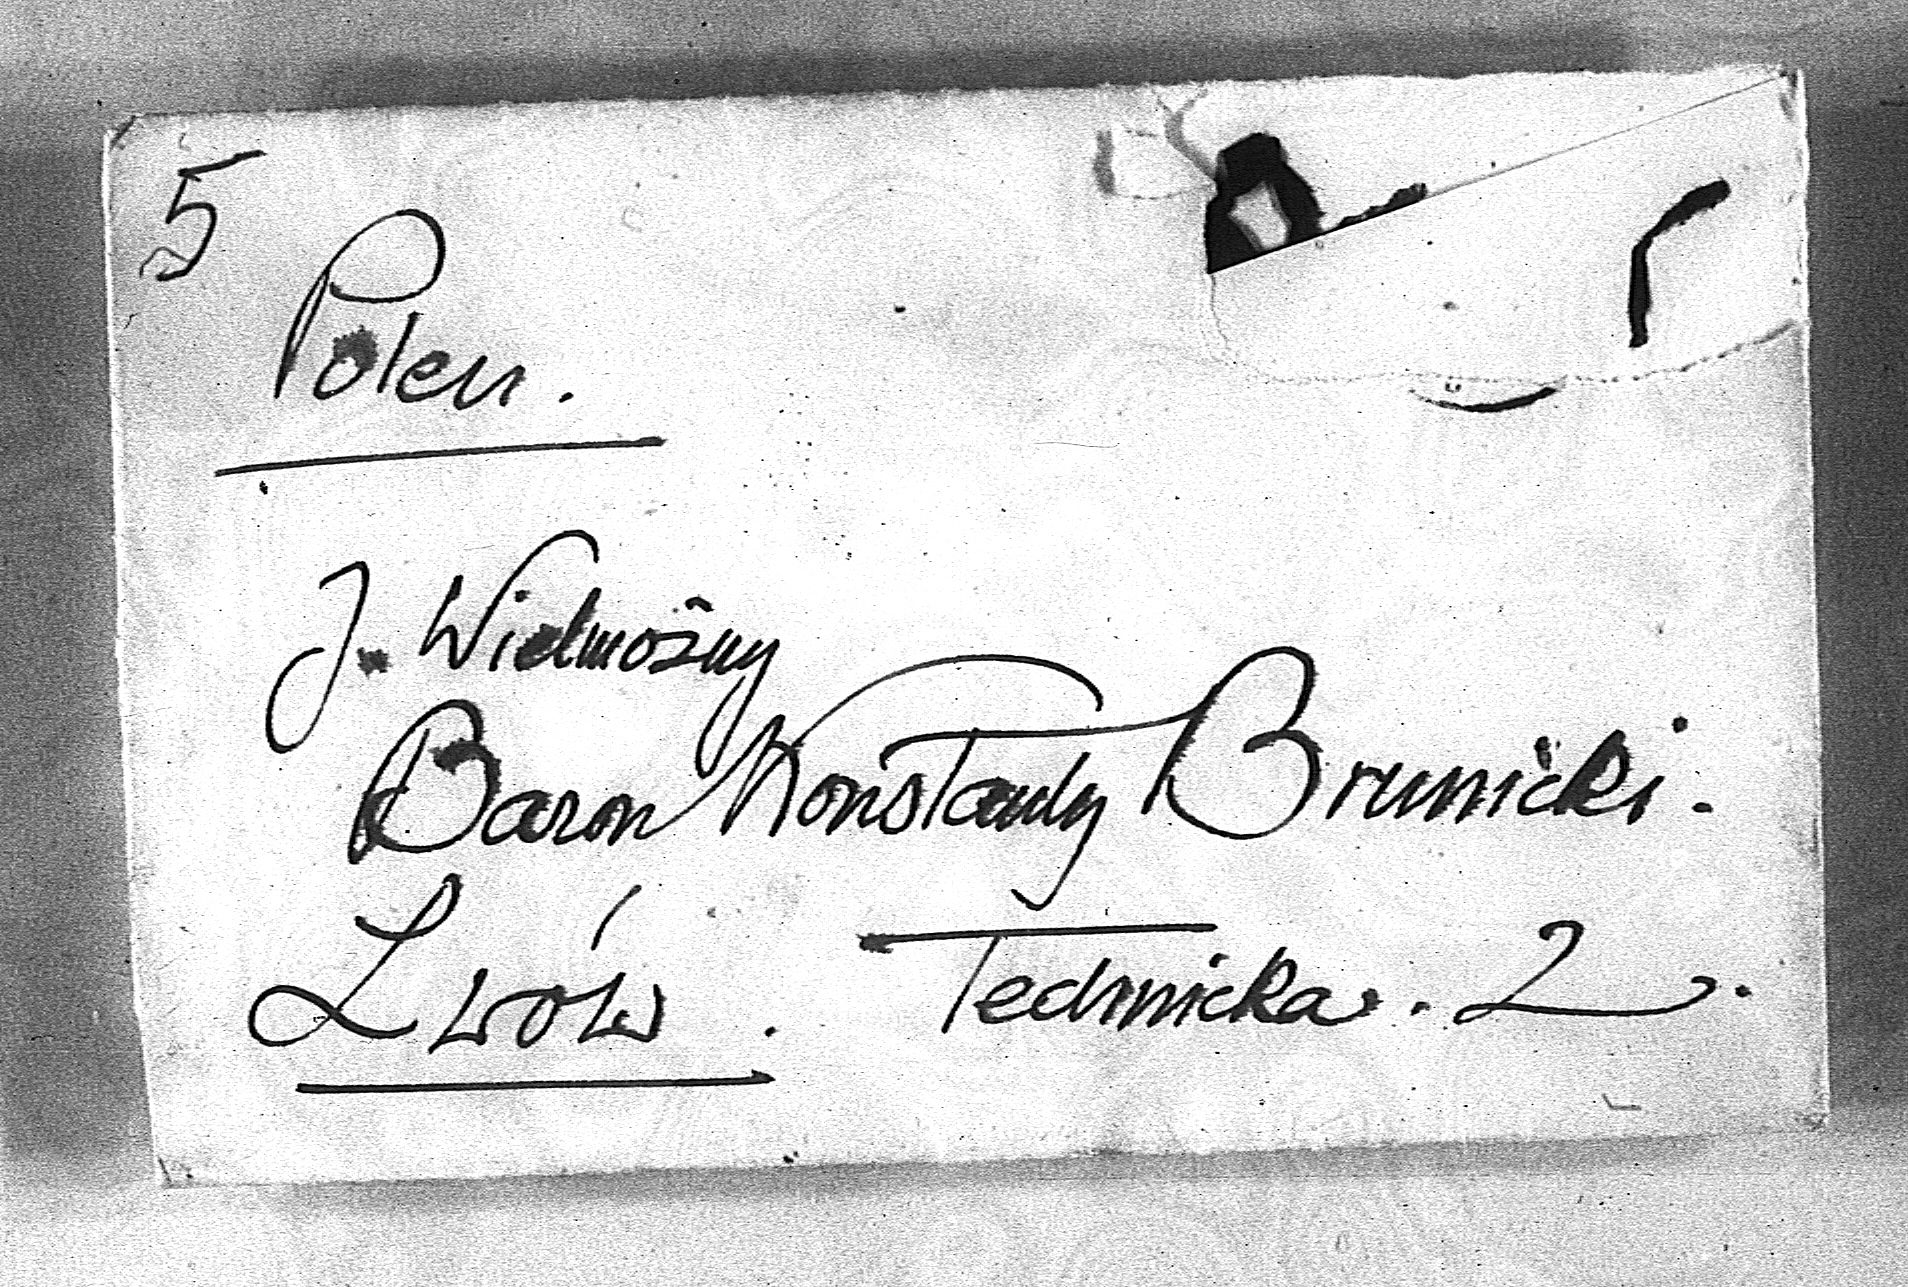 5
Polen.
J. Wielmożny
Baron Konstanty Brunicki.
Lwów. Technicka. 2.